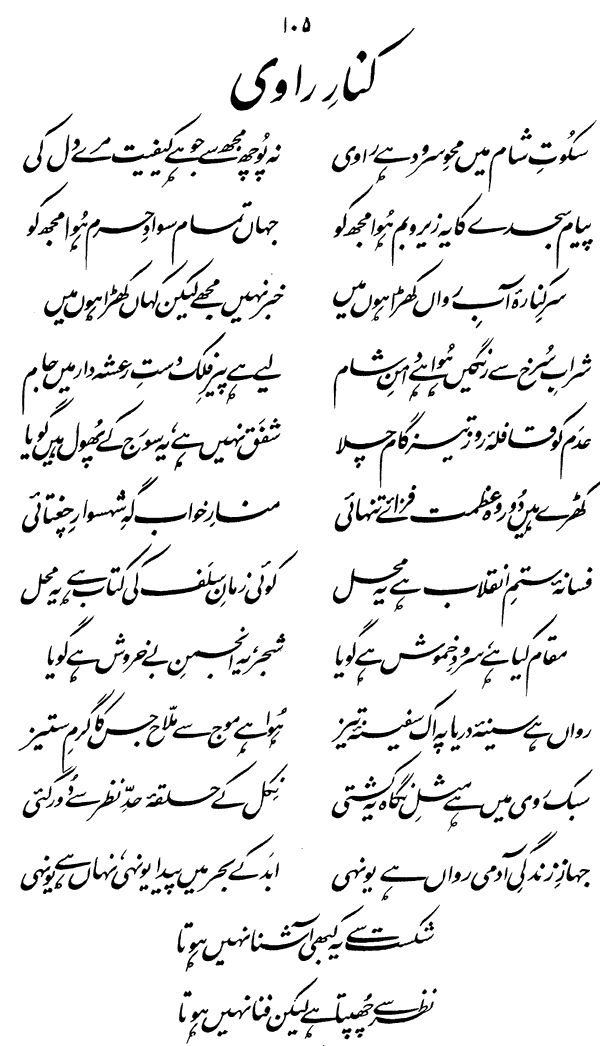 ۱۰۵
کنارِ راوی
سکُوتِ شام میں محوِ سرود ہے راوی نہ پُوچھ مجھ سے جو ہے کیفیت مرے دل کی
پیام سجدے کا یہ زیر و بم ہُوا مجھ کو جہاں تمام سوادِ حرم ہُوا مجھ کو
سرِ کنارۂ آبِ رواں کھڑا ہوں میں خبر نہیں مجھے لیکن کہاں کھڑا ہوں میں
شرابِ سُرخ سے رنگیں ہُوا ہے دامنِ شام لیے ہے پیرِ فلک دستِ رعشہ دار میں جام
عدَم کو قافلۂ روز تیز گام چلا شفَق نہیں ہے، یہ سورج کے پھُول ہیں گویا
کھڑے ہیں دُور وہ عظمت فزائے تنہائی منارِ خواب گہِ شہسوارِ چغتائی
فسانۂ ستمِ انقلاب ہے یہ محل کوئی زمانِ سلَف کی کتاب ہے یہ محل
مقام کیا ہے، سرودِ خموش ہے گویا شجر، یہ انجمنِ بے خروش ہے گویا
رواں ہے سینۂ دریا پہ اک سفینۂ تیز ہُوا ہے موج سے ملّاح جس کا گرمِ ستیز
سبک روی میں ہے مثلِ نگاہ یہ کشتی نِکل کے حلقۂ حدِّ نظر سے دُور گئی
جہازِ زندگیِ آدمی رواں ہے یونہی ابَد کے بحر میں پیدا یونہی، نہاں ہے یونہی
شکست سے یہ کبھی آشنا نہیں ہوتا
نظر سے چھُپتا ہے لیکن فنا نہیں ہوتا